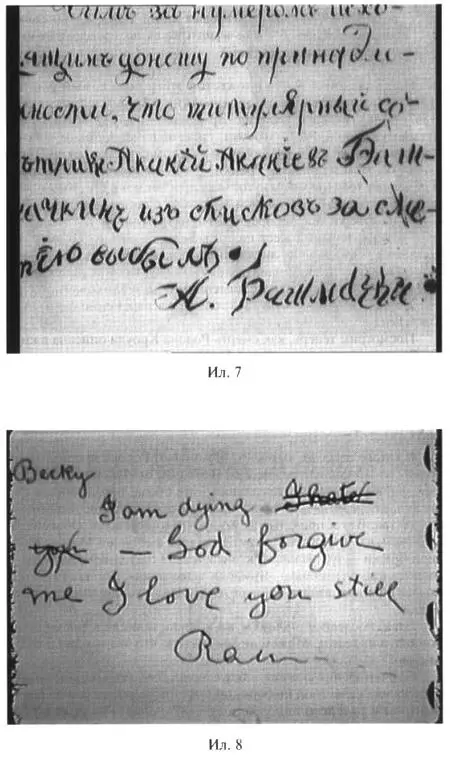 за нумеромъ исхо-
ящимъ доношу по принадле-
жности, что титулярный со-
вѣтникъ Акакій Акакіевъ Баш-
мачкинъ изъ списковъ за сме-
ртію выбылъ.
А.
Ил. 7
Becky
I am dying I hate
you — God forgive
me I love you still
Ил. 8